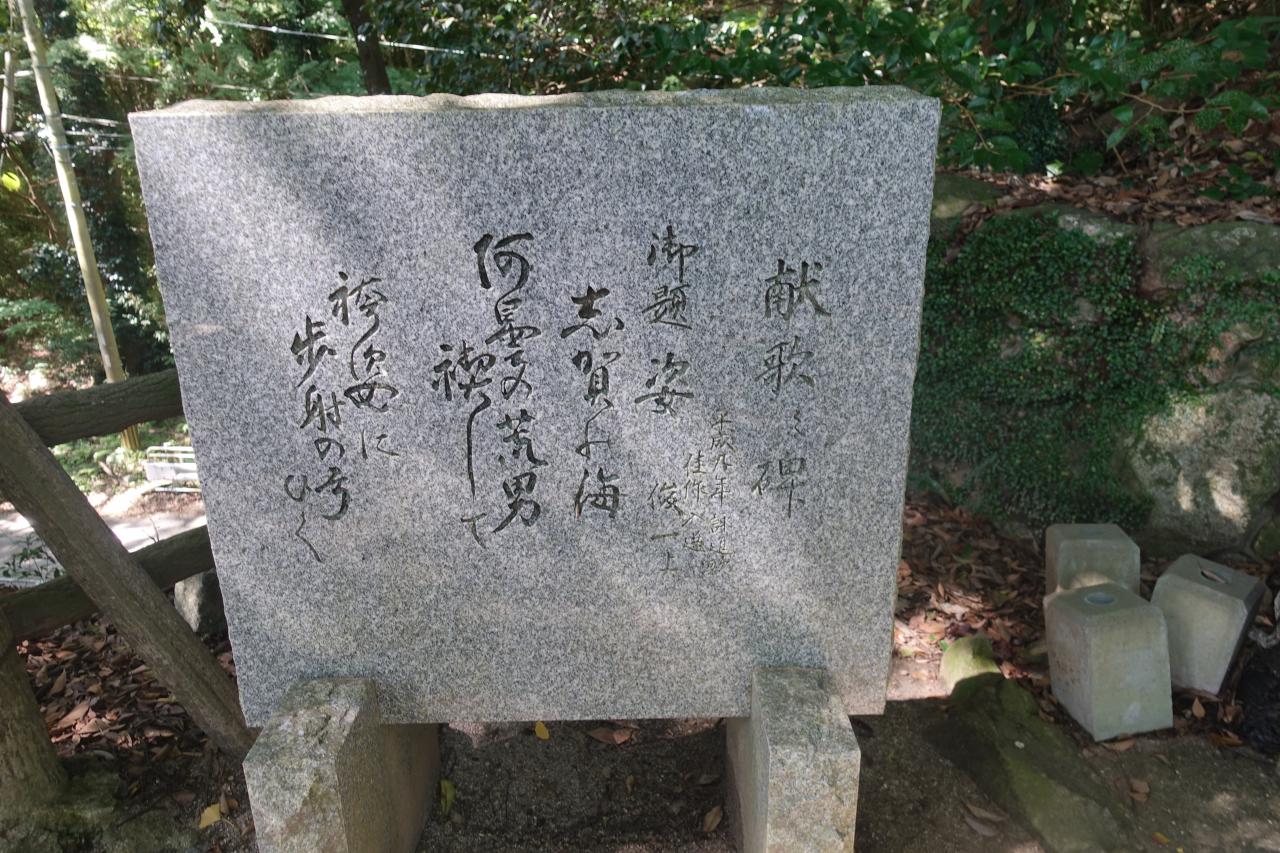 献歌之碑
平成九年
佳作入選
御題 姿 俊一上
志賀の海
阿曇の荒男
禊して
袴姿に
歩射の弓
ひく